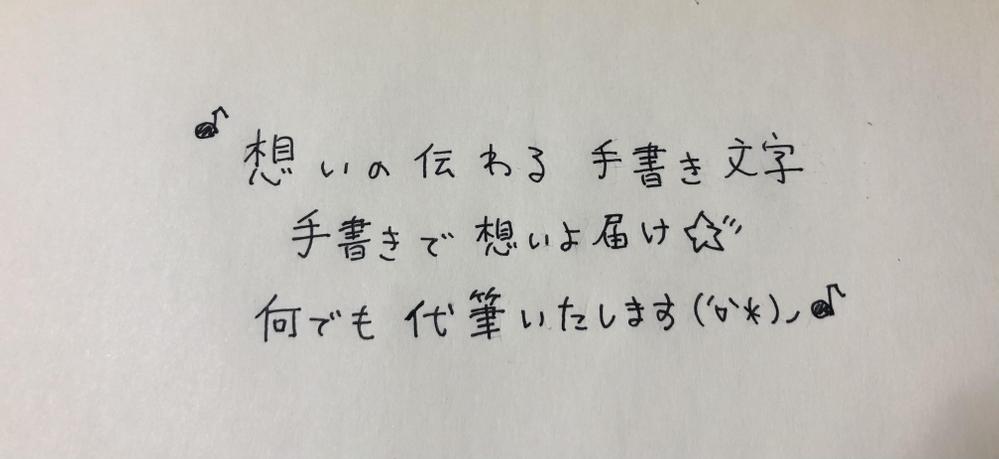 ♪ 想いの伝わる 手書き文字
手書きで想いよ届け☆
何でも 代筆いたします('ω'*)ノ♪